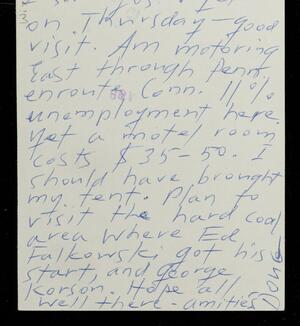 on Thursday - good
visit. Am motoring
East through Penn.
enroute Conn. 11%
unemployment here,
yet a motel room
costs $35-50. I
should have brought
my tent. Plan to
visit the hard coal
area where Ed
Falkowski got his
start, and George
Korson. Hope all
well there - amities